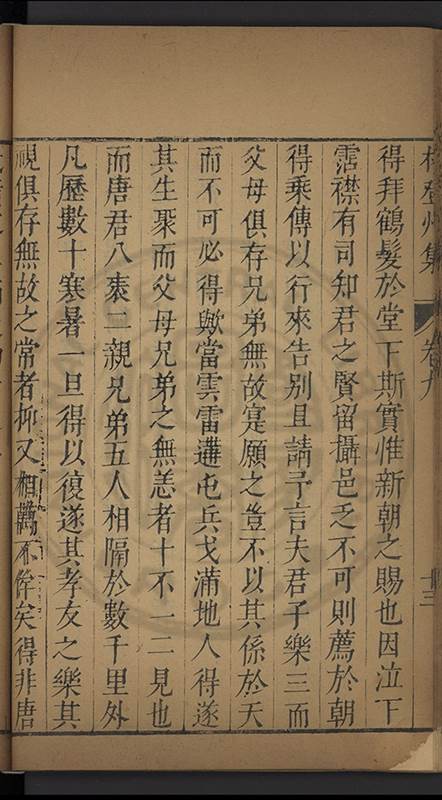 林登州集 卷九 十三
得拜鶴髮於堂下斯實惟新朝之賜也因泣下
霑襟有司知君之賢留攝邑乏不可則薦於朝
得乘傳以行來告别且請予言夫君子樂三而
父母俱存兄弟無故寔願之豈不以其係於天
而不可必得歟當雲雷遘屯兵戈滿地人得遂
其生聚而父母兄弟之無恙者十不一二見也
而唐君八袠二親兄弟五人相隔於數千里外
凡歷數十寒暑一旦得以復遂其孝友之樂其
視俱存無故之常者抑又相萬不侔矣得非唐